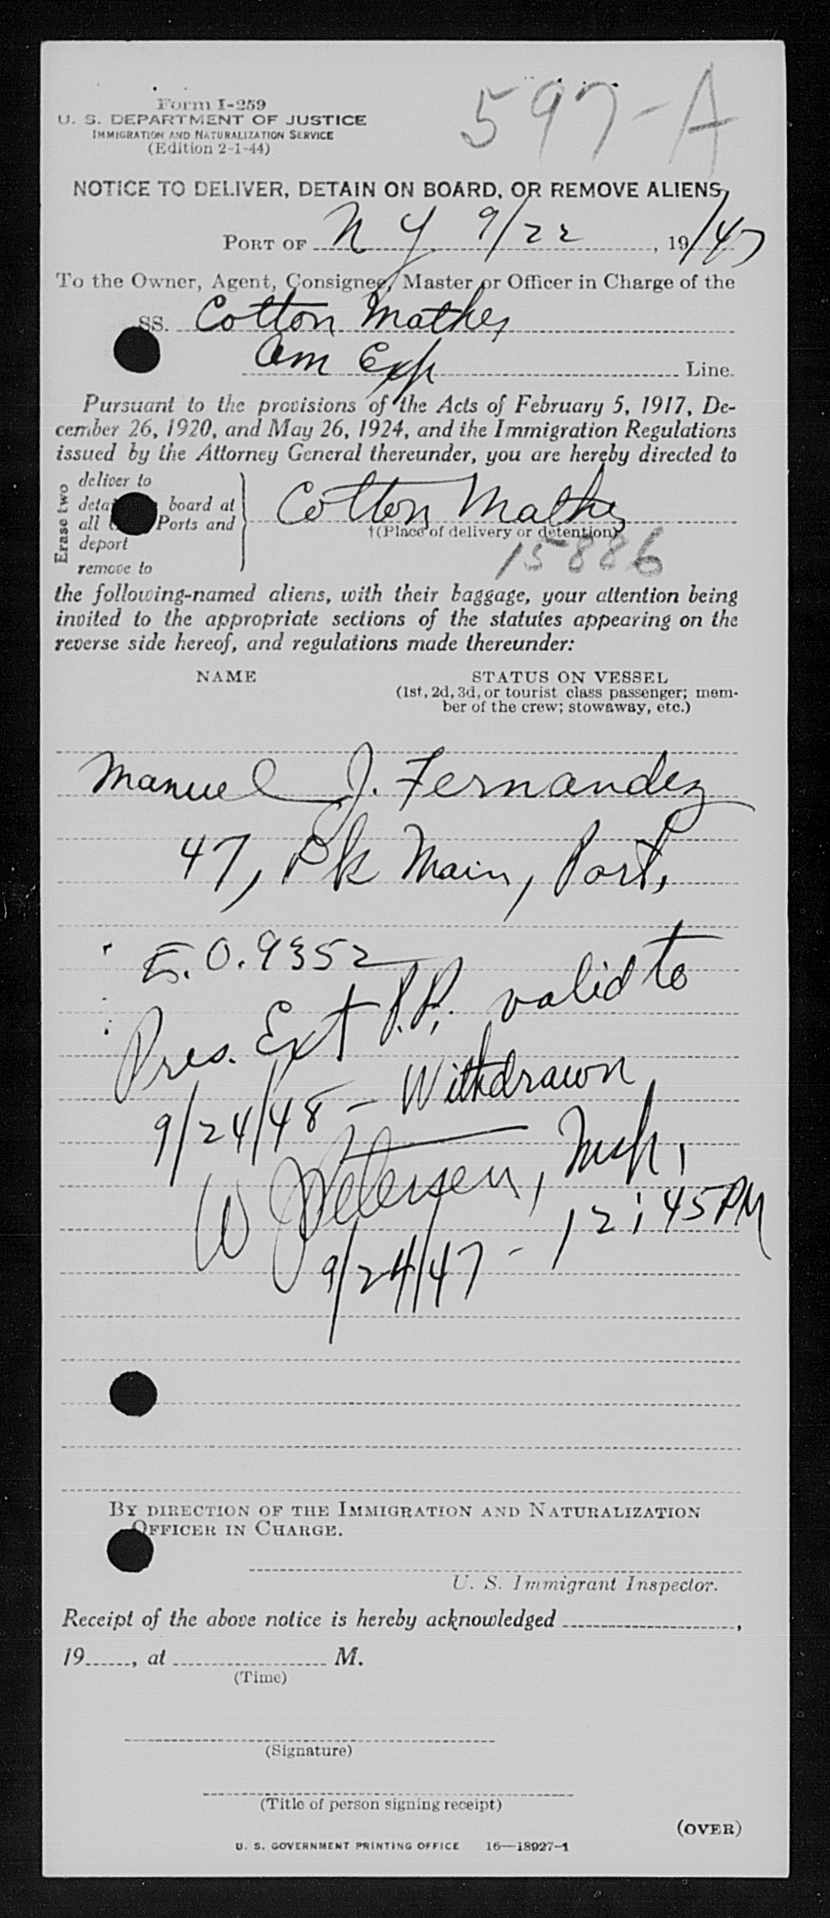 597-A
Form I-259
U. S. DEPARTMENT OF JUSTICE
IMMIGRATION AND NATURALIZATION SERVICE
(Edition 2-1-44)
NOTICE TO DELIVER, DETAIN ON BOARD, OR REMOVE ALIENS
PORT OF N Y 9/22, 19/47
To the Owner, Agent, Consignee, Master or Officer in Charge of the
SS. Cotton Mather
Am Exp Line.
Pursuant to the provisions of the Acts of February 5, 1917, De-
cember 26, 1920, and May 26, 1924, and the Immigration Regulations
issued by the Attorney General thereunder, you are hereby directed to
Erase two
deliver to
board at
all Ports and
deport
remove to
Cotton Mather
†(Place of delivery or detention)
15886
the following-named aliens, with their baggage, your attention being
invited to the appropriate sections of the statutes appearing on the
reverse side hereof, and regulations made thereunder:
NAME
STATUS ON VESSEL
(1st, 2d, 3d, or tourist class passenger; mem-
ber of the crew; stowaway, etc.)
Manuel J. Fernandez
47, Pk Main, Port,
E.O. 9352
Pres. Ext P.P. valid to
9/24/48 - Withdrawn
W Petersen, Insp,
9/24/47 - 12:45 PM
BY DIRECTION OF THE IMMIGRATION AND NATURALIZATION
OFFICER IN CHARGE.
U. S. Immigrant Inspector.
Receipt of the above notice is hereby acknowledged ,
19 , at M.
(Time)
(Signature)
(Title of person signing receipt)
(OVER)
U. S. GOVERNMENT PRINTING OFFICE 16—18927-1